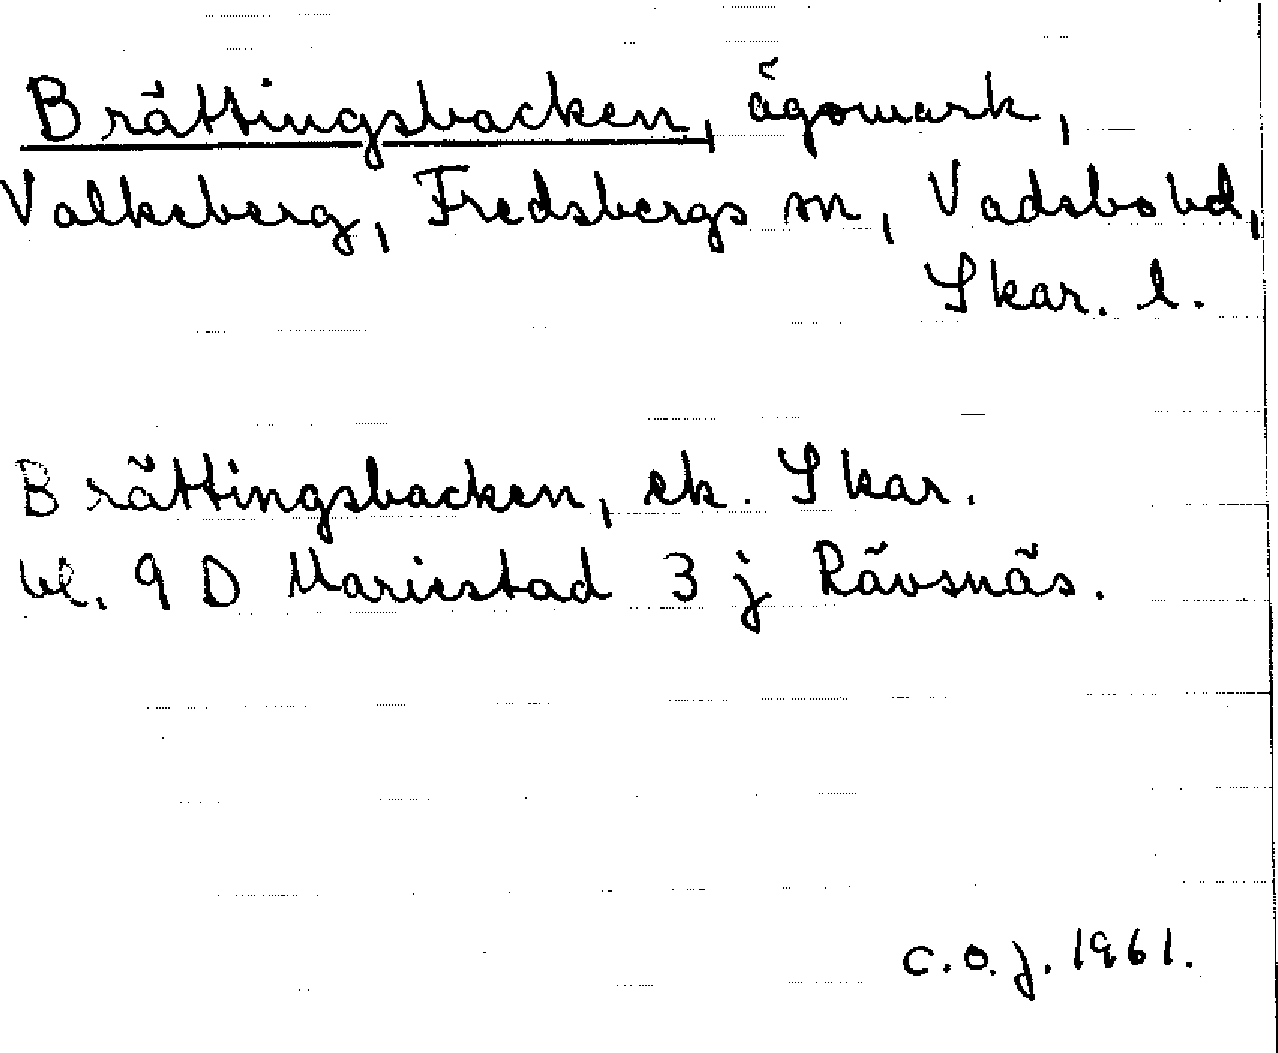 Brättingsbacken, ägomark,
Valkeberg, Fredsbergs sn, Vadsbo hd,
Skar. l.
Brättingsbacken, ek. Skar.
bl. 9 D Mariestad 3 j Rävsnäs.
C.O.J. 1961.